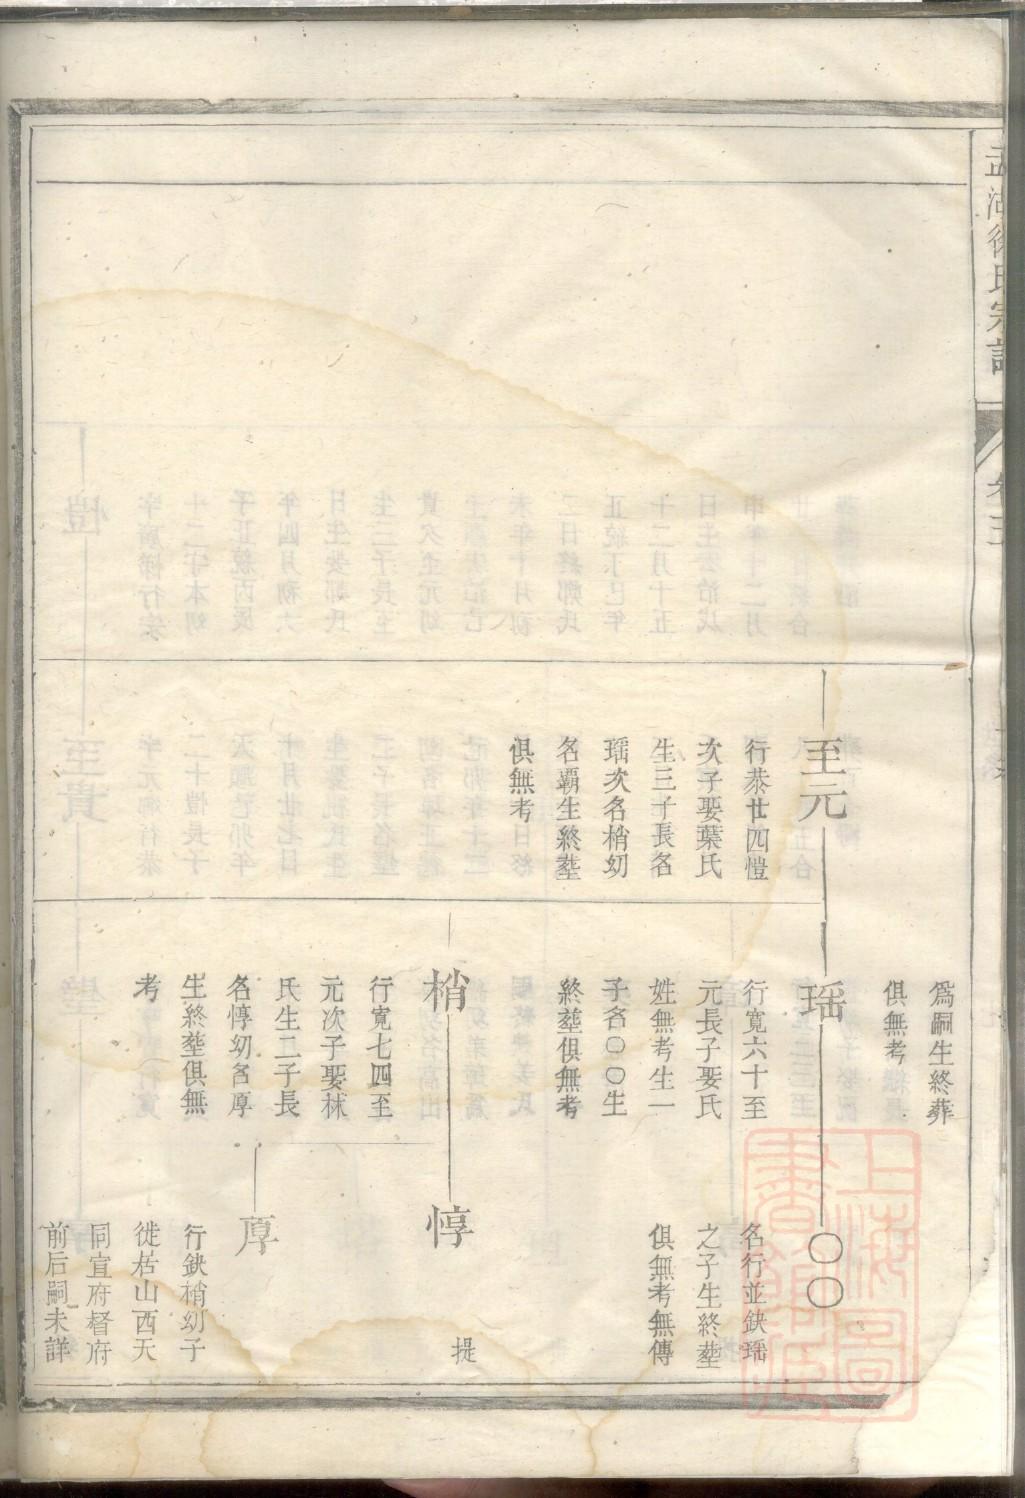 孟湖徐氏宗譜
卷三
至元
行恭廿四愷
次子娶葉氏
生三子長名
瑶次名梢幼
名覇生終塟
俱無考
爲嗣生終葬
俱無考
瑶
行寛六十至
元長子娶氏
姓無考生一
子名〇〇生
終塟俱無考
梢
行寛七四至
元次子娶林
氏生二子長
名惇幼名厚
生終塟俱無
考
〇〇
名行並鈌瑶
之子生終塟
俱無考無傳
惇
提
厚
行鈌梢幼子
徙居山西天
同宣府督府
前后嗣未詳
上海圖書館藏